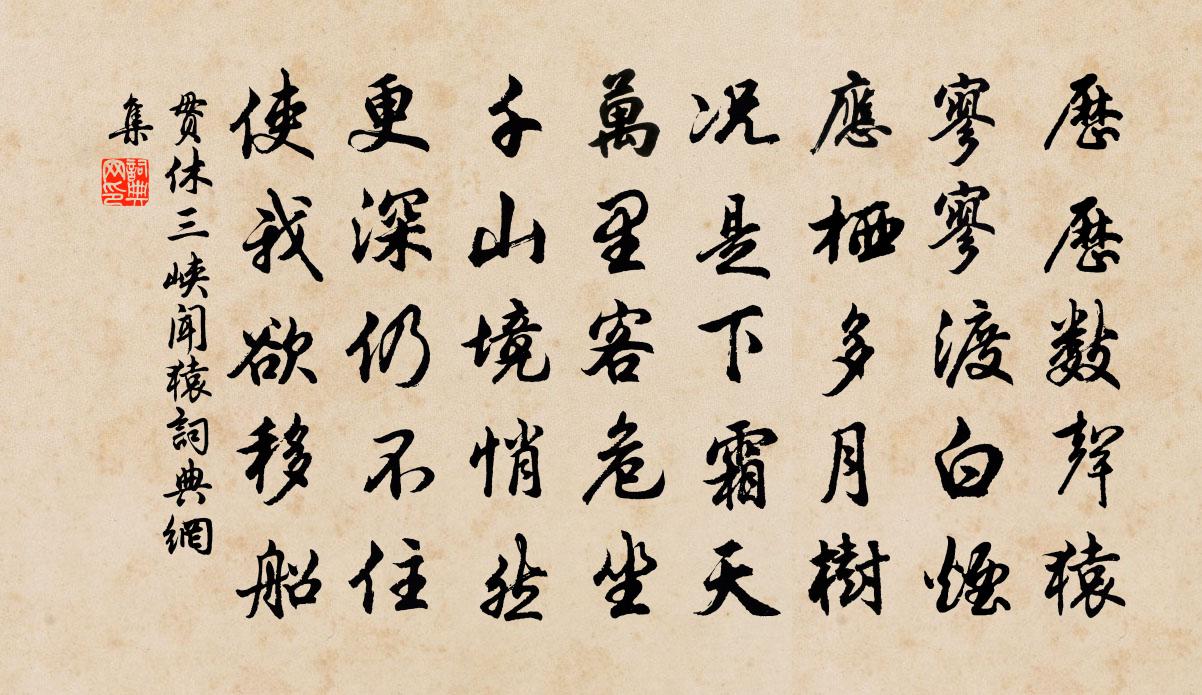 歷歷數聲猿
寥寥渡白煙
應栖多月樹
况是下霜天
萬里客危坐
千山境悄然
更深仍不住
使我欲移船
貫休三峽聞猿詞典網
集
詞典
网印